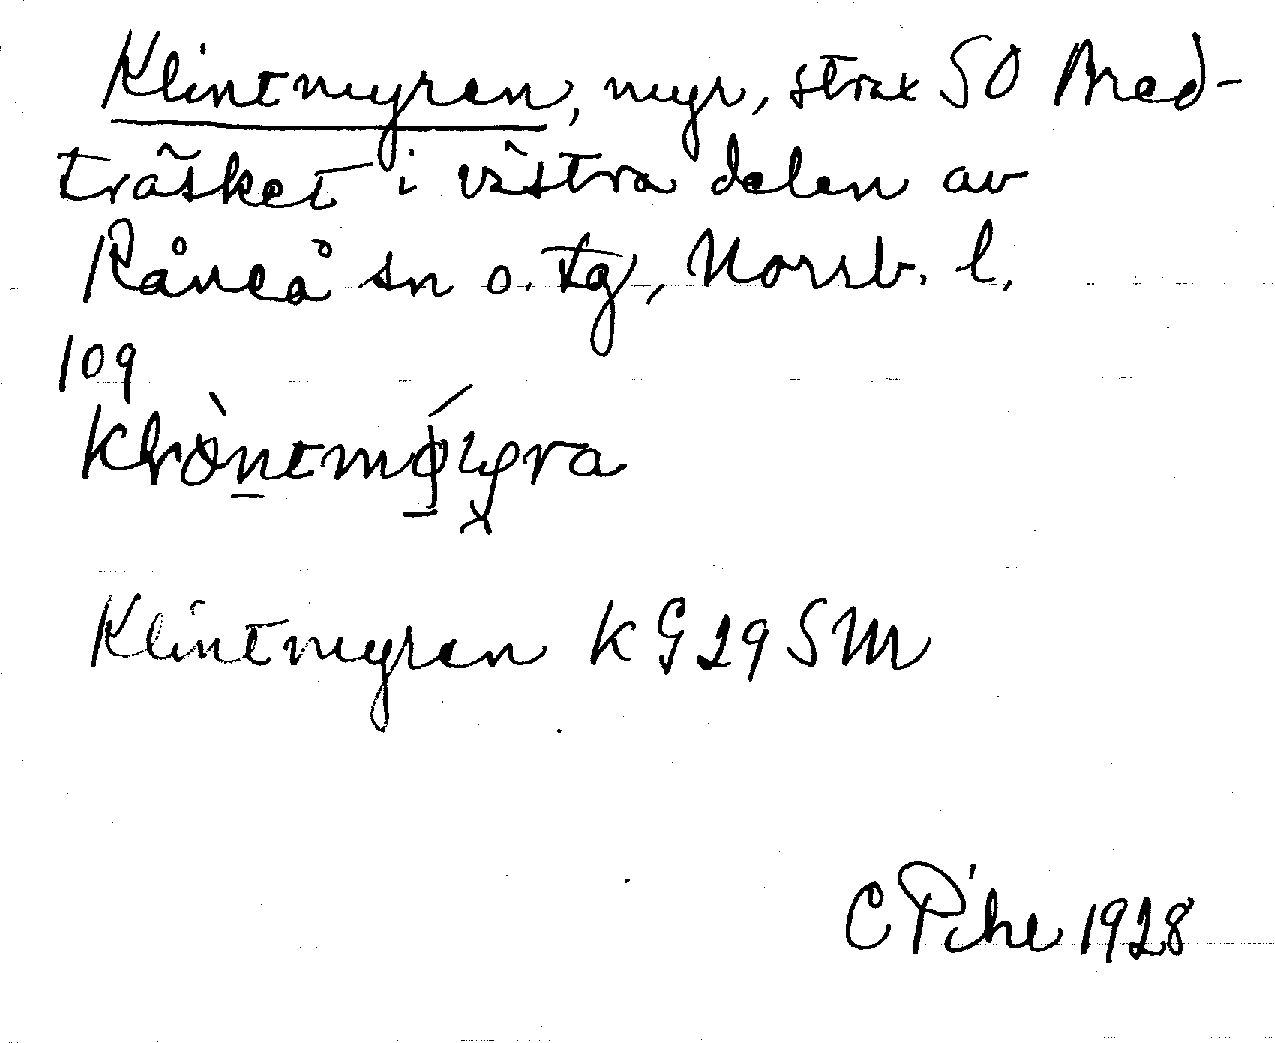 Klintmyren, myr, strax SO Bred-
träsket i västra delen av
Råneå sn o. tg, Norrb. l.
109
Klintmyren KG 29 SM
C Pihl 1928